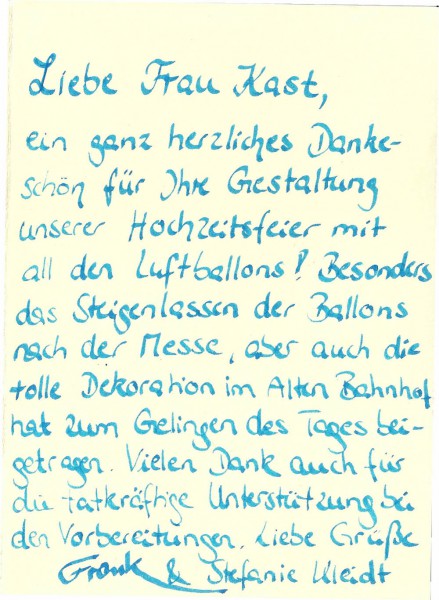 Liebe Frau Kast,
ein ganz herzliches Danke-
schön für Ihre Gestaltung
unserer Hochzeitsfeier mit
all den Luftballons! Besonders
das Steigenlassen der Ballons
nach der Messe, aber auch die
tolle Dekoration im Alten Bahnhof
hat zum Gelingen des Tages bei-
getragen. Vielen Dank auch für
die tatkräftige Unterstützung bei
den Vorbereitungen. Liebe Grüße
Frank & Stefanie